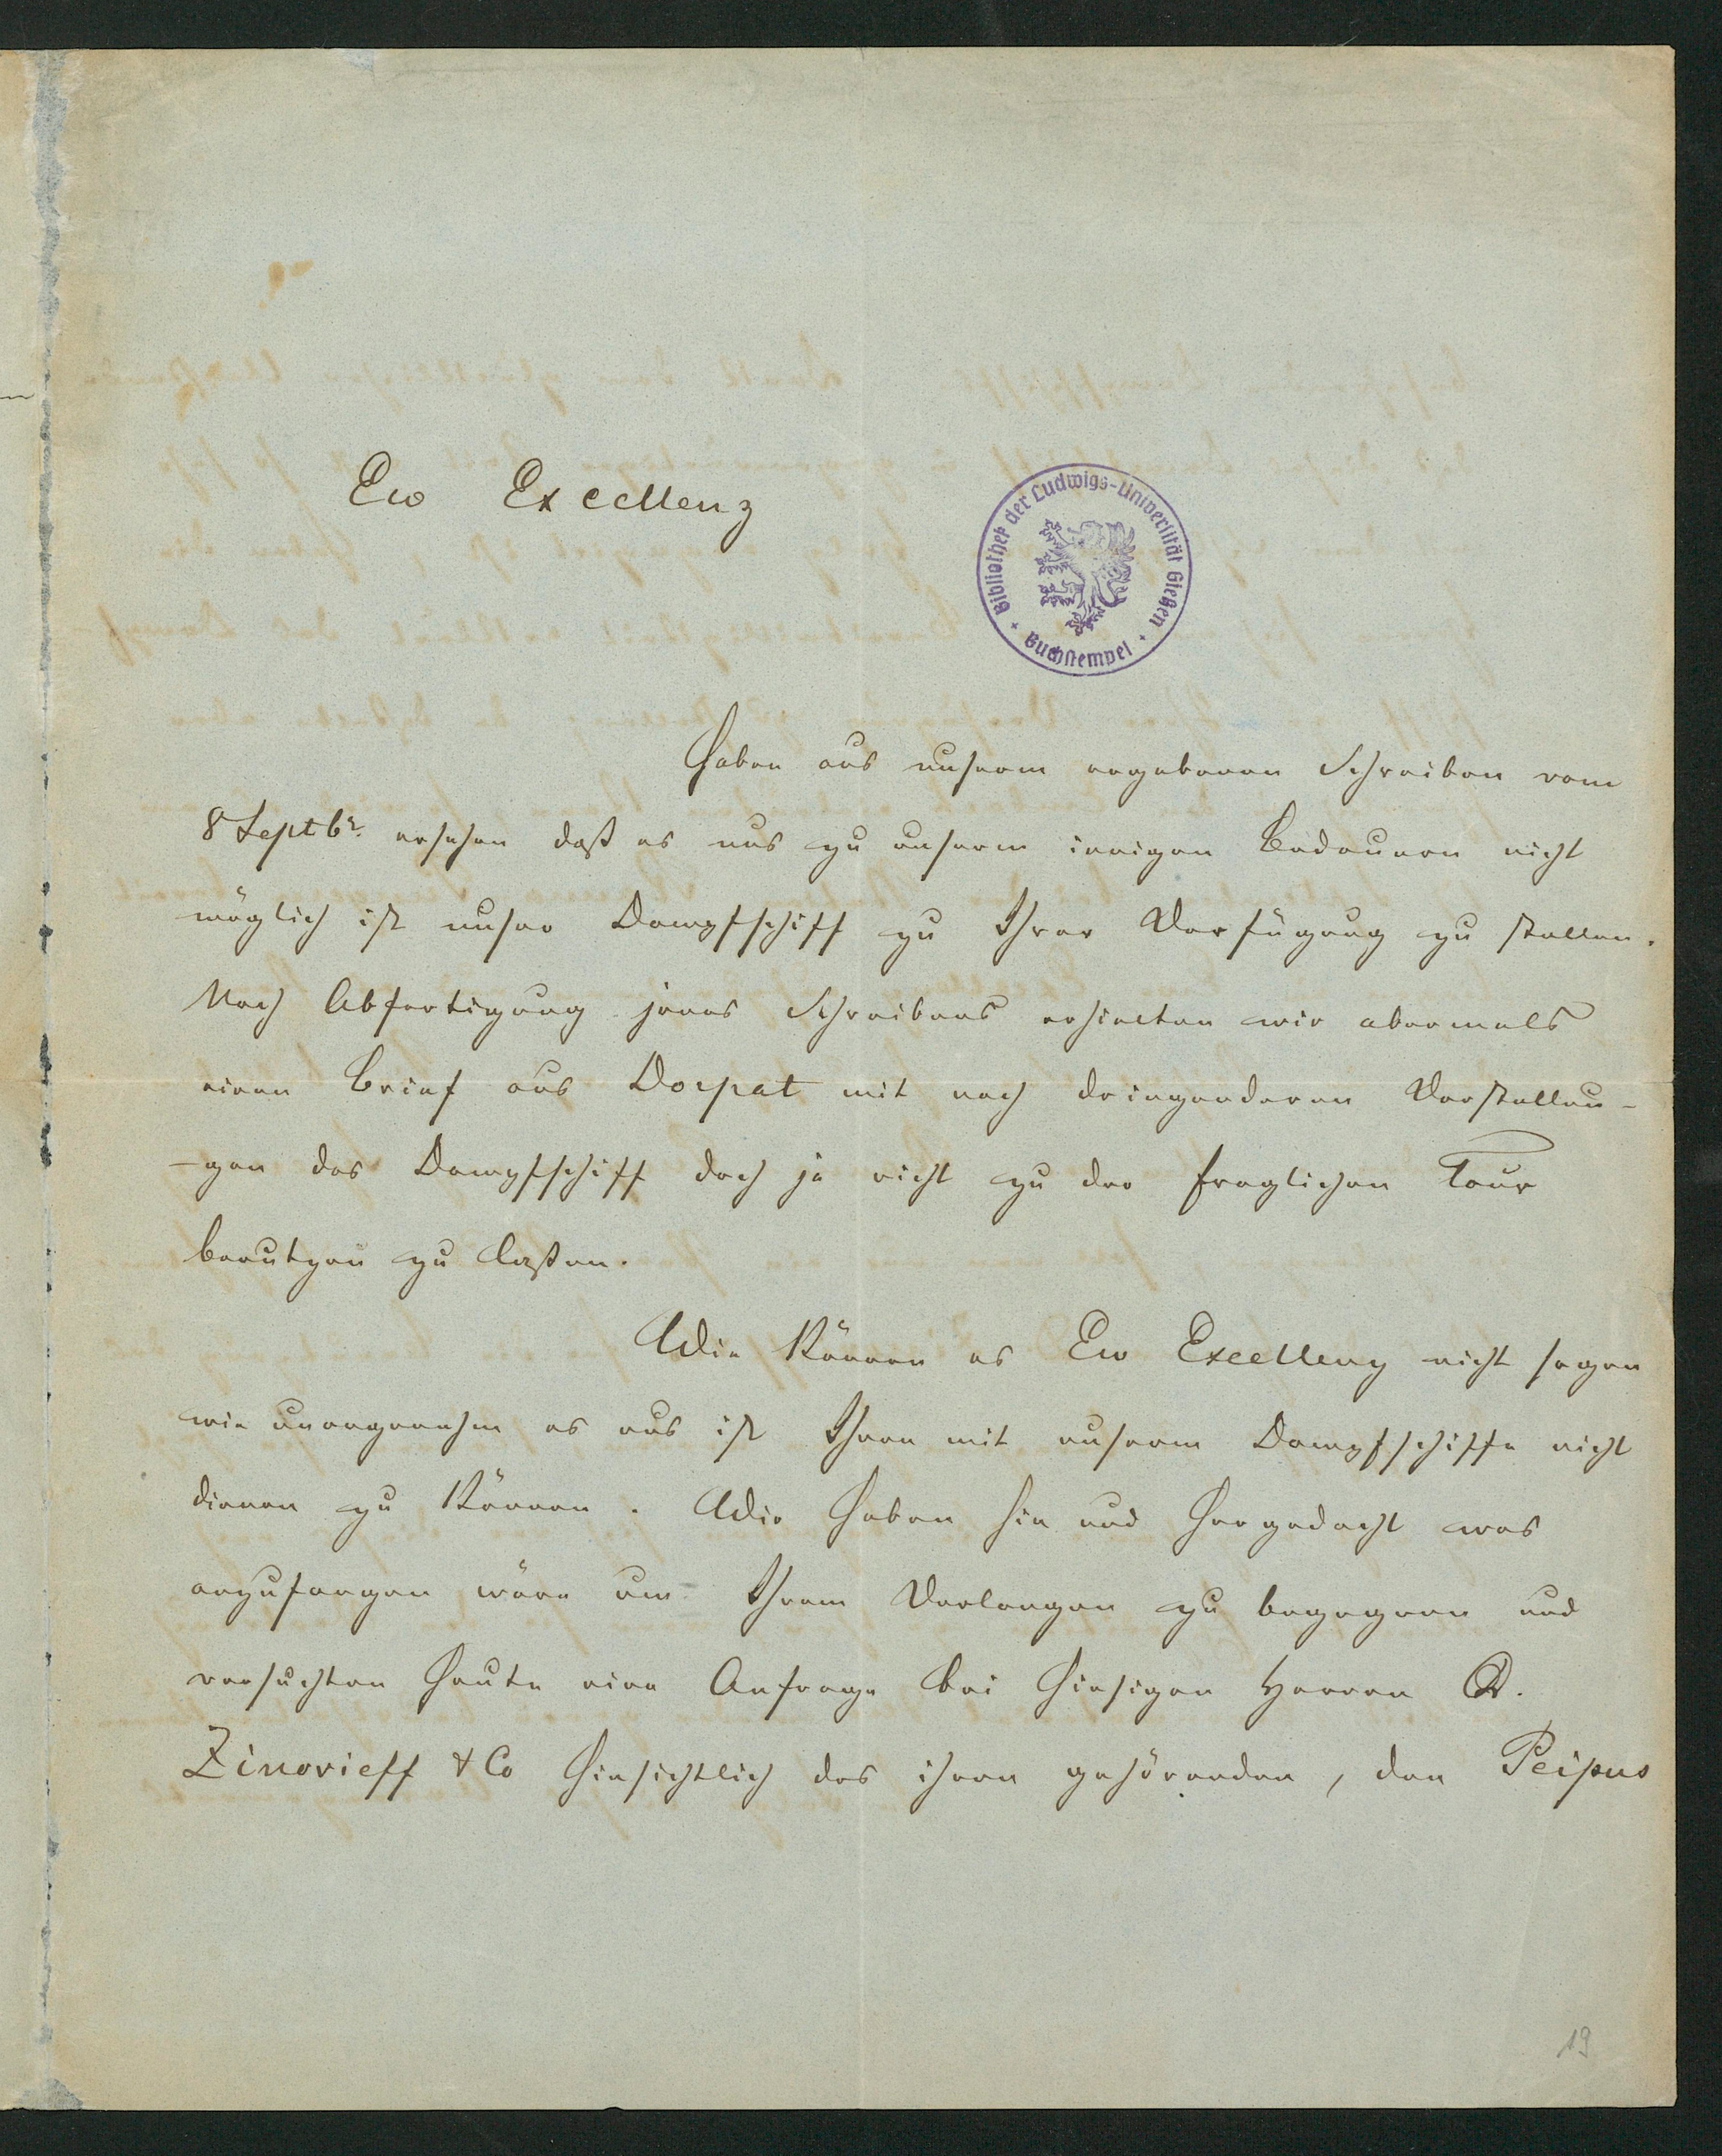 Ew Excellenz
Bibliothek der Ludwigs-Universität Gießen
Buchstempel
Haben aus unserm ergebenen Schreiben vom
8 Septbr. ersehen daß es uns zu unserm innigen Bedauern nicht
möglich ist unser Dampfschiff zu Ihrer Verfügung zu stellen.
Nach Abfertigung jenes Schreibens erhielten wir abermals
einen Brief aus Dorpat mit noch dringenderen Vorstellun-
-gen das Dampfschiff doch ja nicht zu der fraglichen Tour
benutzen zu laßen.
Wir können es Ew Excellenz nicht sagen
wie unangenehm es uns ist Ihnen mit unserm Dampfschiffe nicht
dienen zu können. Wir haben hin und her gedacht was
anzufangen wäre um Ihrem Verlangen zu begegnen und
versuchten heute eine Anfrage bei hiesigen Herren
Zinovieff & Co hinsichtlich des ihnen gehörenden, den Peipus
19